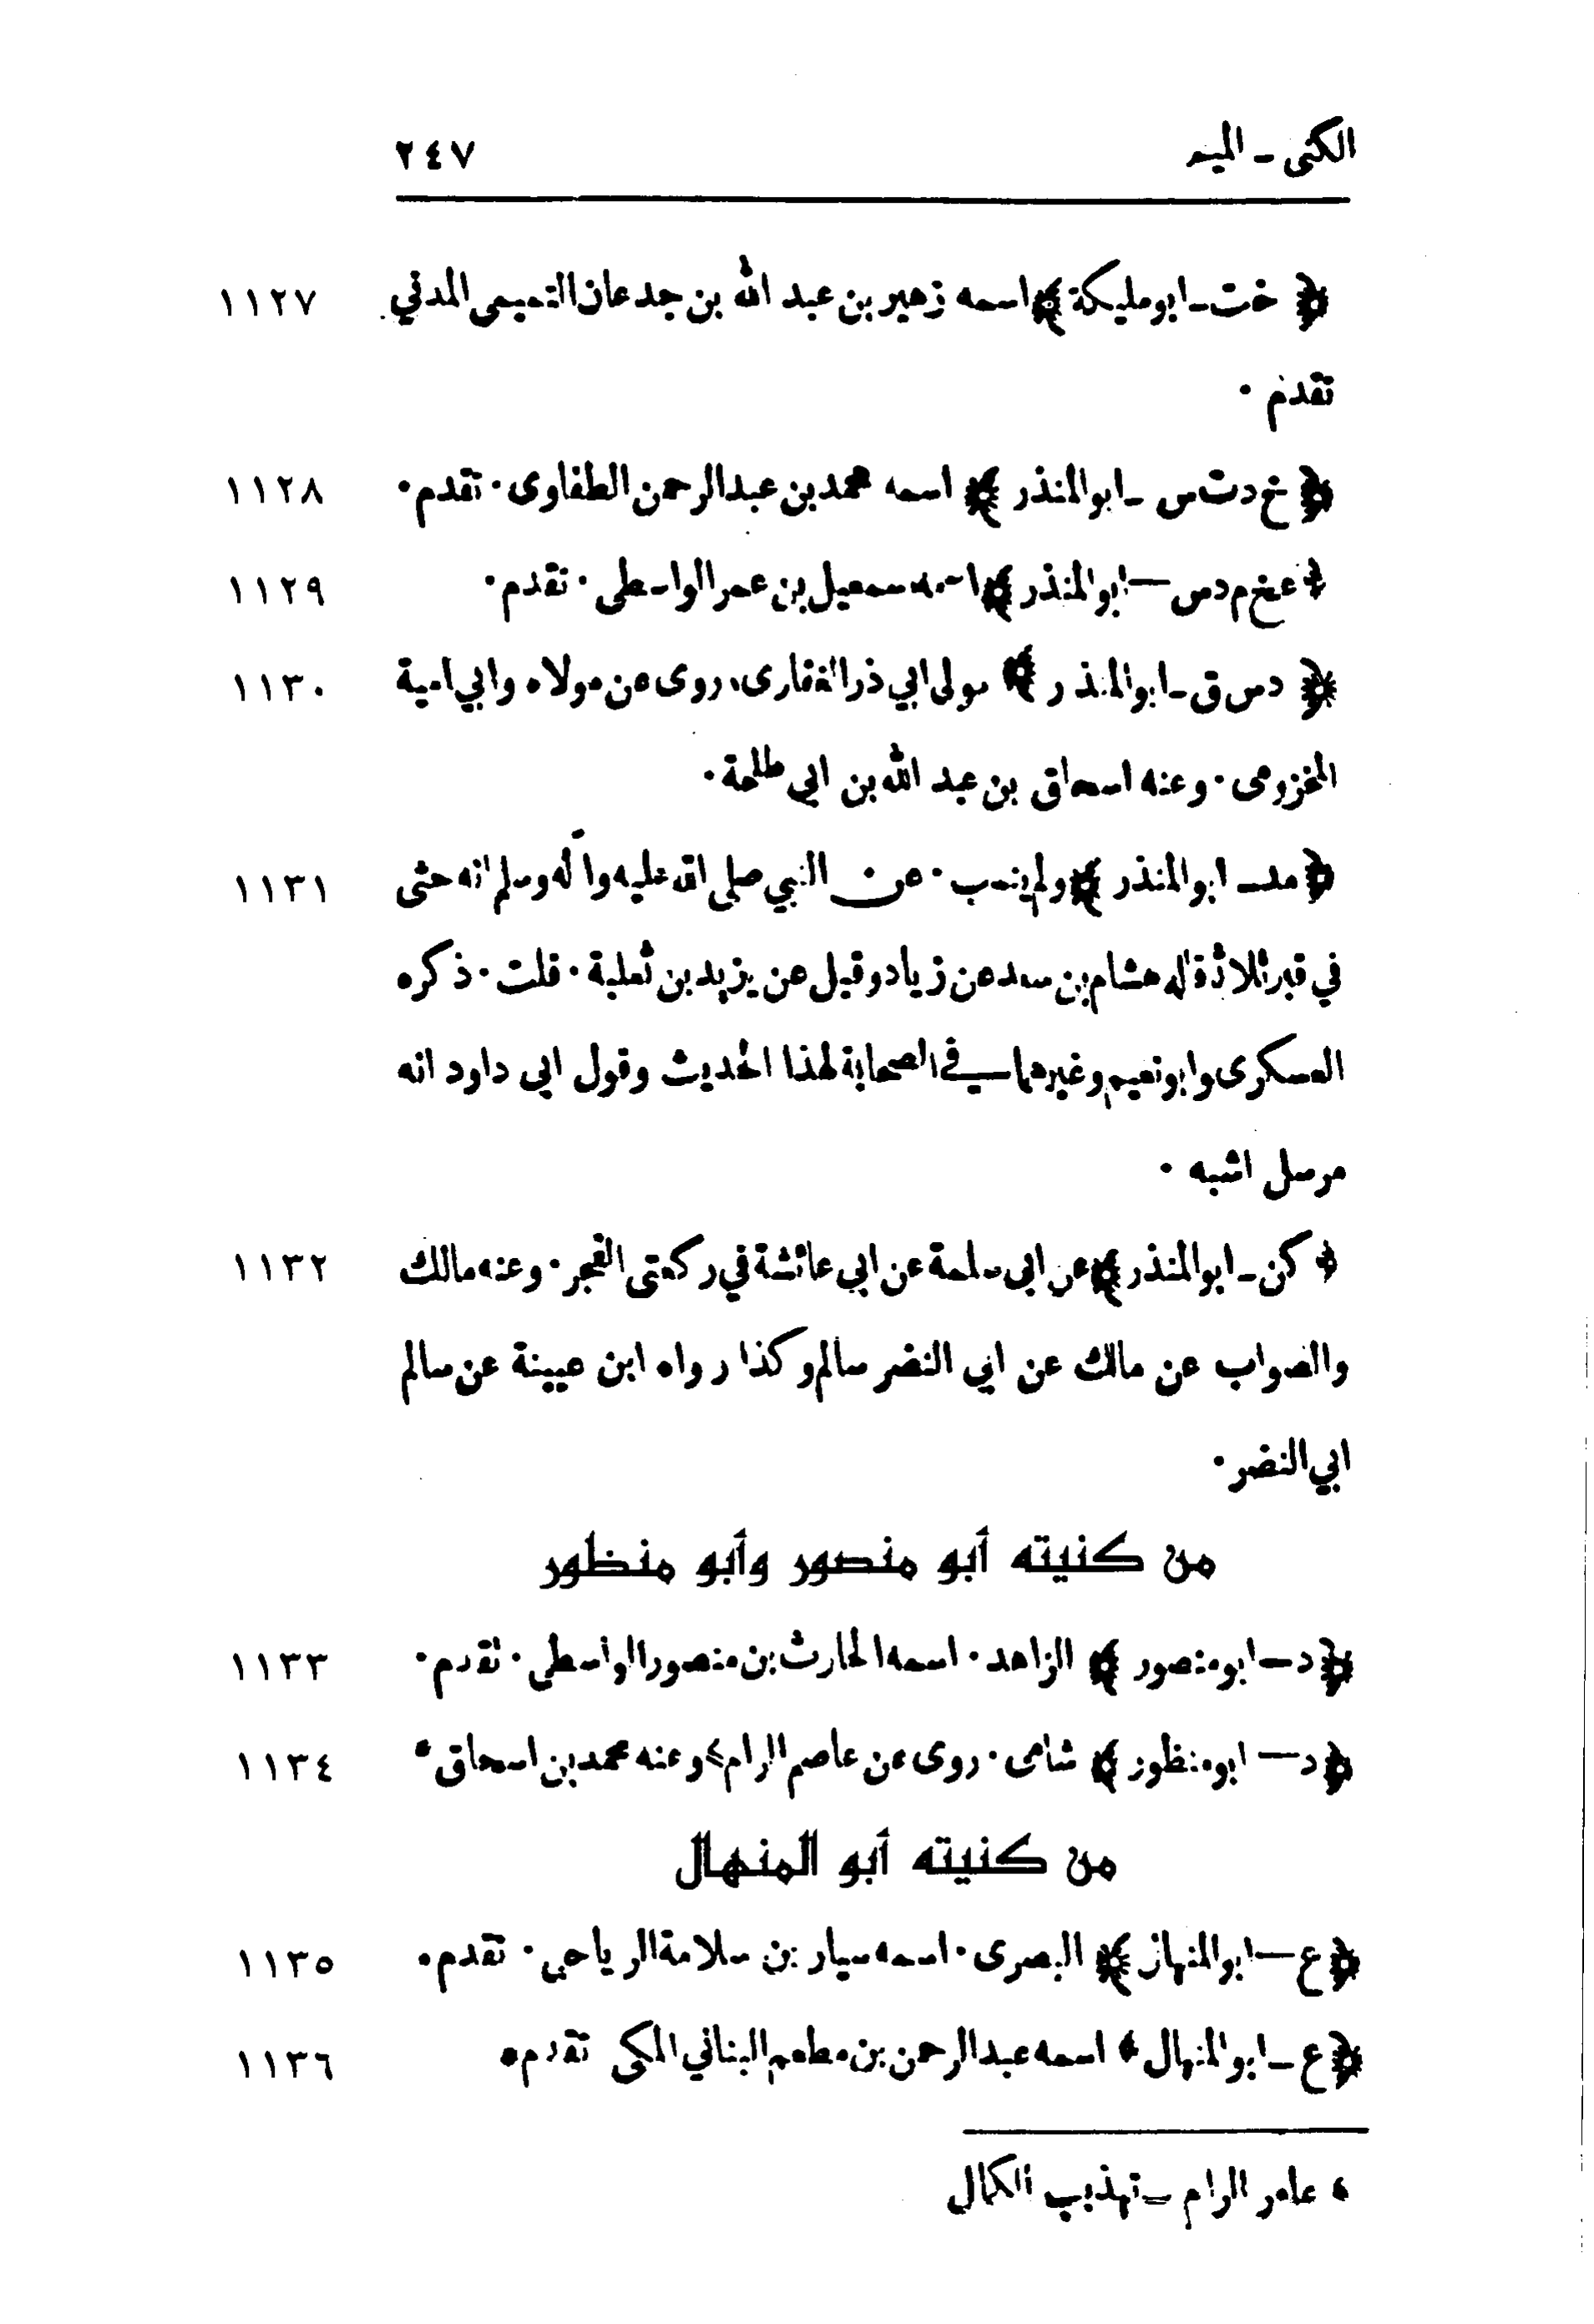 الكنى ـ الميم ٢٤٧
﴿ خت ـ ابو مليكة ﴾ اسمه زهير بن عبد الله بن جدعان التميمى المدني. ١١٢٧
تقدم ٠
﴿ خ د ت س ـ ابو المنذر ﴾ اسمه محمد بن عبد الرحمن الطفاوى ٠ تقدم ٠ ١١٢٨
﴿ عخ م د س — ابو المنذر ﴾ اسمه اسمعيل بن عمر الواسطى ٠ تقدم ٠ ١١٢٩
﴿ د س ق ـ ابو المنذر ﴾ مولى ابي ذر الغفارى، روى عن مولاه وابي امية ١١٣٠
المخزومى ٠ وعنه اسحاق بن عبد الله بن ابي طلحة ٠
﴿ مد ـ ابو المنذر ﴾ ولم ينسب ٠ عن النبي صلى الله عليه وآله وسلم انه حثى ١١٣١
في قبر ثلاثا قاله هشام بن سعد عن زياد وقيل عن يزيد بن ثعلبة ٠ قلت ٠ ذكره
العسكرى وابو نعيم وغيرهما في الصحابة لهذا الحديث وقول ابى داود انه
مرسل اشبه ٠
﴿ كن ـ ابو المنذر ﴾ عن ابى سلمة عن ابي عائشة في ركعتى الفجر ٠ وعنه مالك ١١٣٢
والصواب عن مالك عن ابي النضر سالم وكذا رواه ابن عيينة عن سالم
ابي النضر ٠
من كنيته أبو منصور وأبو منظور
﴿ د — ابو منصور ﴾ الزاهد ٠ اسمه الحارث بن منصور الواسطى ٠ تقدم ٠ ١١٣٣
﴿ د — ابو منظور ﴾ شامى ٠ روى عن عاصم الرام * وعنه محمد بن اسحاق * ١١٣٤
من كنيته أبو المنهال
﴿ ع — ابو المنهال ﴾ البصرى ٠ اسمه سيار بن سلامة الرياحى ٠ تقدم ٠ ١١٣٥
﴿ ع ـ ابو المنهال ﴾ اسمه عبد الرحمن بن مطعم البناني المكى تقدم ٠ ١١٣٦
* عامر الرام ـ تهذيب الكمال